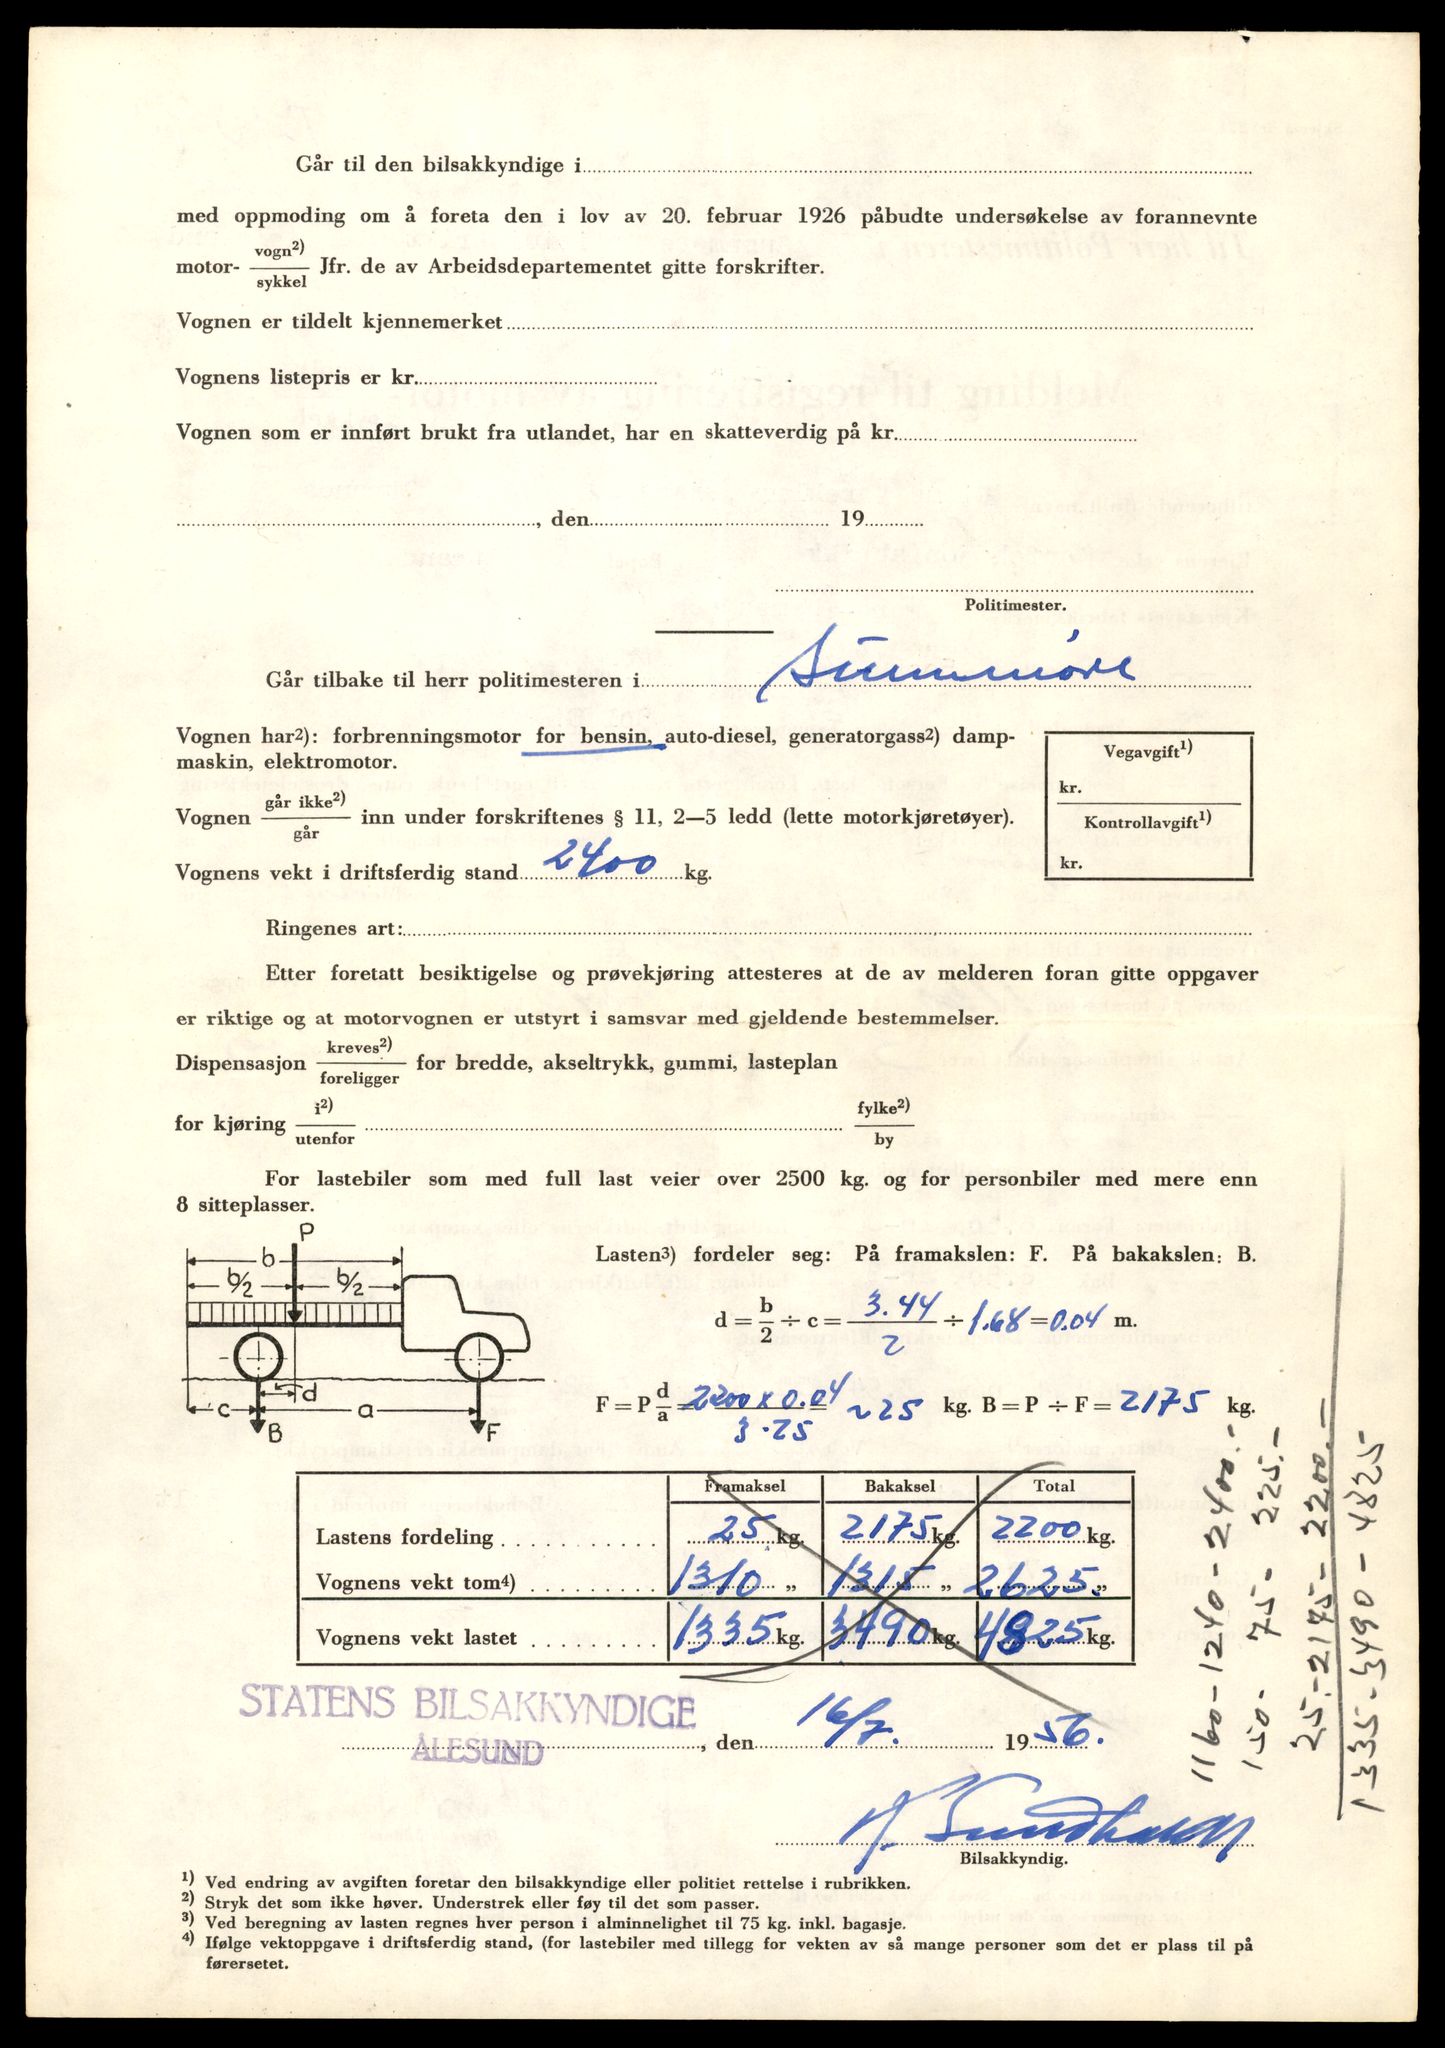 Går til den bilsakkyndige i
med oppmoding om å foreta den i lov av 20. februar 1926 påbudte undersøkelse av forannevnte
motor- vogn2) / sykkel Jfr. de av Arbeidsdepartementet gitte forskrifter.
Vognen er tildelt kjennemerket
Vognens listepris er kr.
Vognen som er innført brukt fra utlandet, har en skatteverdig på kr.
, den 19
Politimester.
Går tilbake til herr politimesteren i Sunnmøre
Vognen har2): forbrenningsmotor for bensin, auto-diesel, generatorgass2) damp-
maskin, elektromotor.
Vegavgift1)
kr.
Kontrollavgift1)
kr.
Vognen går ikke2) / går inn under forskriftenes § 11, 2—5 ledd (lette motorkjøretøyer).
Vognens vekt i driftsferdig stand 2400 kg.
Ringenes art:
Etter foretatt besiktigelse og prøvekjøring attesteres at de av melderen foran gitte oppgaver
er riktige og at motorvognen er utstyrt i samsvar med gjeldende bestemmelser.
Dispensasjon kreves2) / foreligger for bredde, akseltrykk, gummi, lasteplan
for kjøring i2) / utenfor fylke2) / by
For lastebiler som med full last veier over 2500 kg. og for personbiler med mere enn
8 sitteplasser.
P
b
b/2 b/2
d
c a
B F
Lasten3) fordeler seg: På framakslen: F. På bakakslen: B.
d = b/2 ÷ c = 3.44/2 ÷ 1.68 = 0.04 m.
F = P d/a = 2200 x 0.04 / 3.25 = ~25 kg. B = P ÷ F = 2175 kg.
Framaksel Bakaksel Total
Lastens fordeling 25 kg. 2175 kg. 2200 kg.
Vognens vekt tom4) 1310 „ 1315 „ 2625. „
Vognens vekt lastet 1335 kg. 3490 kg. 4825 kg.
1160 - 1240 - 2400.-
150 - 75 - 225.-
25.- 2175 - 2200.-
1335 - 3490 - 4825
STATENS BILSAKKYNDIGE
ÅLESUND
, den 16/7. 1956.
Bilsakkyndig.
1) Ved endring av avgiften foretar den bilsakkyndige eller politiet rettelse i rubrikken.
2) Stryk det som ikke høver. Understrek eller føy til det som passer.
3) Ved beregning av lasten regnes hver person i alminnelighet til 75 kg. inkl. bagasje.
4) Ifølge vektoppgave i driftsferdig stand, (for lastebiler med tillegg for vekten av så mange personer som det er plass til på
førersetet.